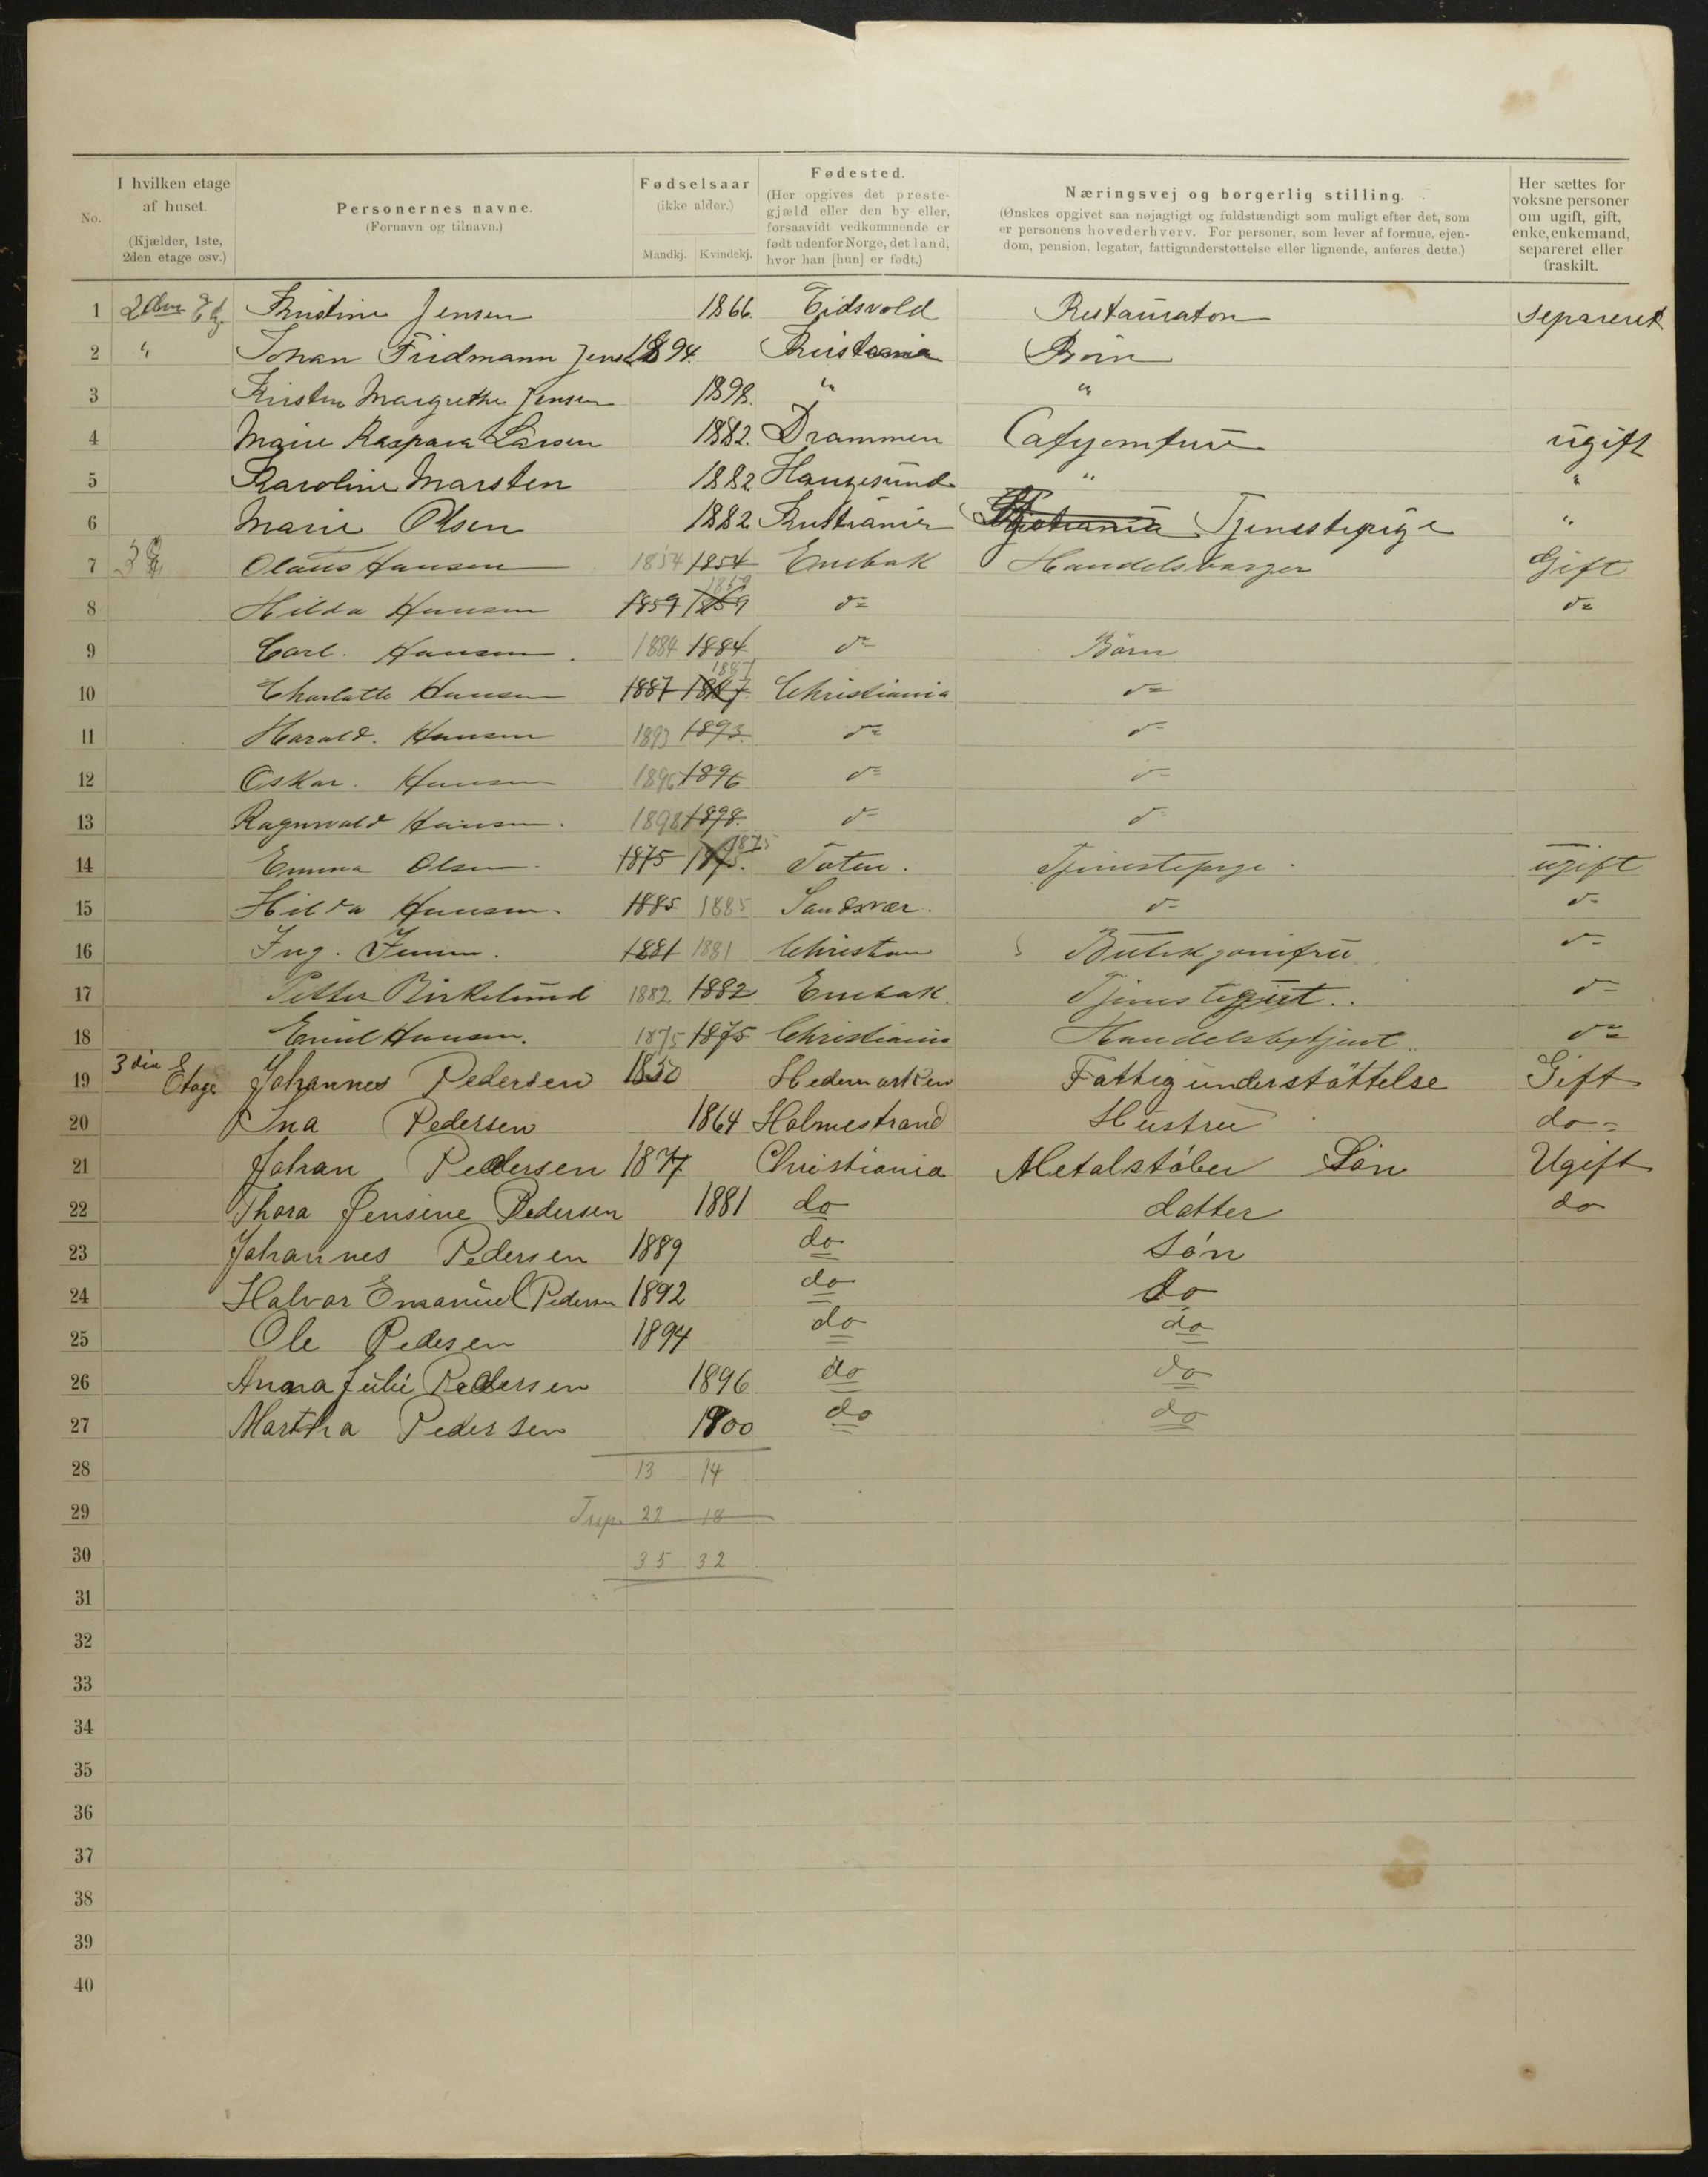 No.
I hvilken etage af huset.
(Kjælder, 1ste, 2den etage osv.)
Personernes navne.
(Fornavn og tilnavn.)
Fødselsaar
(ikke alder.)
Mandkj. Kvindekj.
Fødested.
(Her opgives det prestegjæld eller den by eller, forsaavidt vedkommende er født udenfor Norge, det land, hvor han [hun] er født.)
Næringsvej og borgerlig stilling.
(Ønskes opgivet saa nøjagtigt og fuldstændigt som muligt efter det, som er personens hovederhverv. For personer, som lever af formue, ejendom, pension, legater, fattigunderstøttelse eller lignende, anføres dette.)
Her sættes for voksne personer om ugift, gift, enke, enkemand, separeret eller fraskilt.
1 2den Etg. Kristine Jensen 1866. Eidsvold Restauration Separeret
2 " Johan Fridmann Jensen 1894. Kristania Børn
3 Kirsten Margrethe Jensen 1898. " "
4 Marie Kaspara Larsen 1882. Drammen Cafejomfru ugift
5 Karoline Marsten 1882 Haugesund " "
6 Marie Olsen 1882 Kristiania Tjenestepige "
7 3 E Olaus Hansen 1854 1854 Enebak Handelsborger Gift
8 Hilda Hansen 1859 1859 1859 do do
9 Carl. Hansen. 1884 1884 do Børn
10 Charlotte Hansen 1887 1887. 1887 Christiania do
11 Harald. Hansen 1893 1893. do do
12 Oskar. Hansen 1896 1896 do do
13 Ragnvald Hansen. 1898 1898. do do
14 Emma Olsen. 1875 1875. 1875 Toten. Tjenestepige. ugift
15 Hilda Hansen. 1885 1885 Sandsvær. do do
16 Ing. Jensen. 1881 1881 Christian Butikjomfru do
17 Petter Birkelund 1882 1882 Enebak. Tjenestegut.. do
18 Emil Hansen. 1875 1875 Christiania Handelsbetjent.. do
19 3die Etage Johannes Pedersen 1850 Hedemarken Fattigunderstøttelse Gift
20 Ina Pedersen 1864 Holmestrand Hustru do
21 Johan Pedersen 1877 Christiania Metalstøber Søn Ugift
22 Thora Jensine Pedersen 1881 do datter do
23 Johannes Pedersen 1889 do Søn
24 Halvor Emanuel Pedersen 1892 do do
25 Ole Pedesen 1894 do do
26 Anna Julie Pedersen 1896 do do
27 Martha Pedersen 1900 do do
28 13 14
29 Trsp. 22 18
30 35 32
31
32
33
34
35
36
37
38
39
40